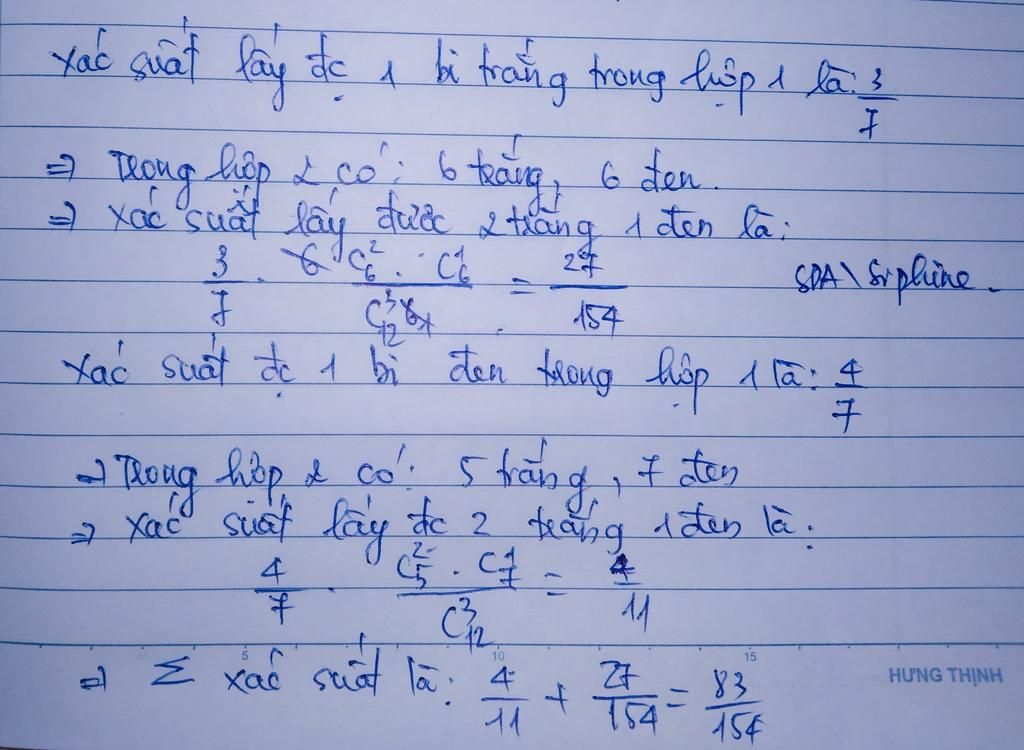 xác suất lấy đc 1 bi trắng trong hộp 1 là: 3/7
⇒ Trong hộp 2 có: 6 trắng, 6 đen.
⇒ xác suất lấy được 2 trắng 1 đen là:
3/7 . C₆² . C₆¹ / C₁₂³ = 27/154
SDA\Srphine.
xác suất đc 1 bi đen trong hộp 1 là: 4/7
⇒ Trong hộp 2 có: 5 trắng, 7 đen
⇒ xác suất lấy đc 2 trắng 1 đen là:
4/7 . C₅² . C₇¹ / C₁₂³ = 4/11
⇒ Σ xác suất là: 4/11 + 27/154 = 83/154
5 10 15
HƯNG THỊNH